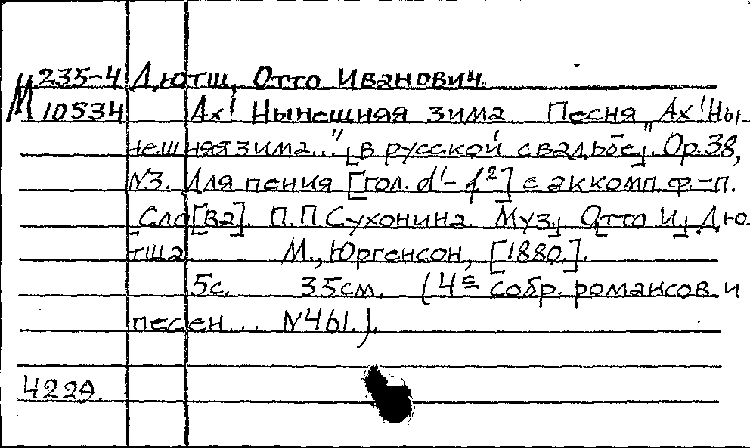 М 235-4 Дютш, Отто Иванович.
10534 Ах! Нынешняя зима. Песня „Ах! Ны-
нешняя зима..." [в русской свадьбе]. Ор. 38,
N3. Для пения [гол. d¹-f²] с аккомп. ф.-п.
Сло[ва] П.П. Сухонина. Муз. Отто И. Дю-
тша. М., Юргенсон, [1880.].
5с. 35см. (4е собр. романсов и
песен... N461.).
4229.